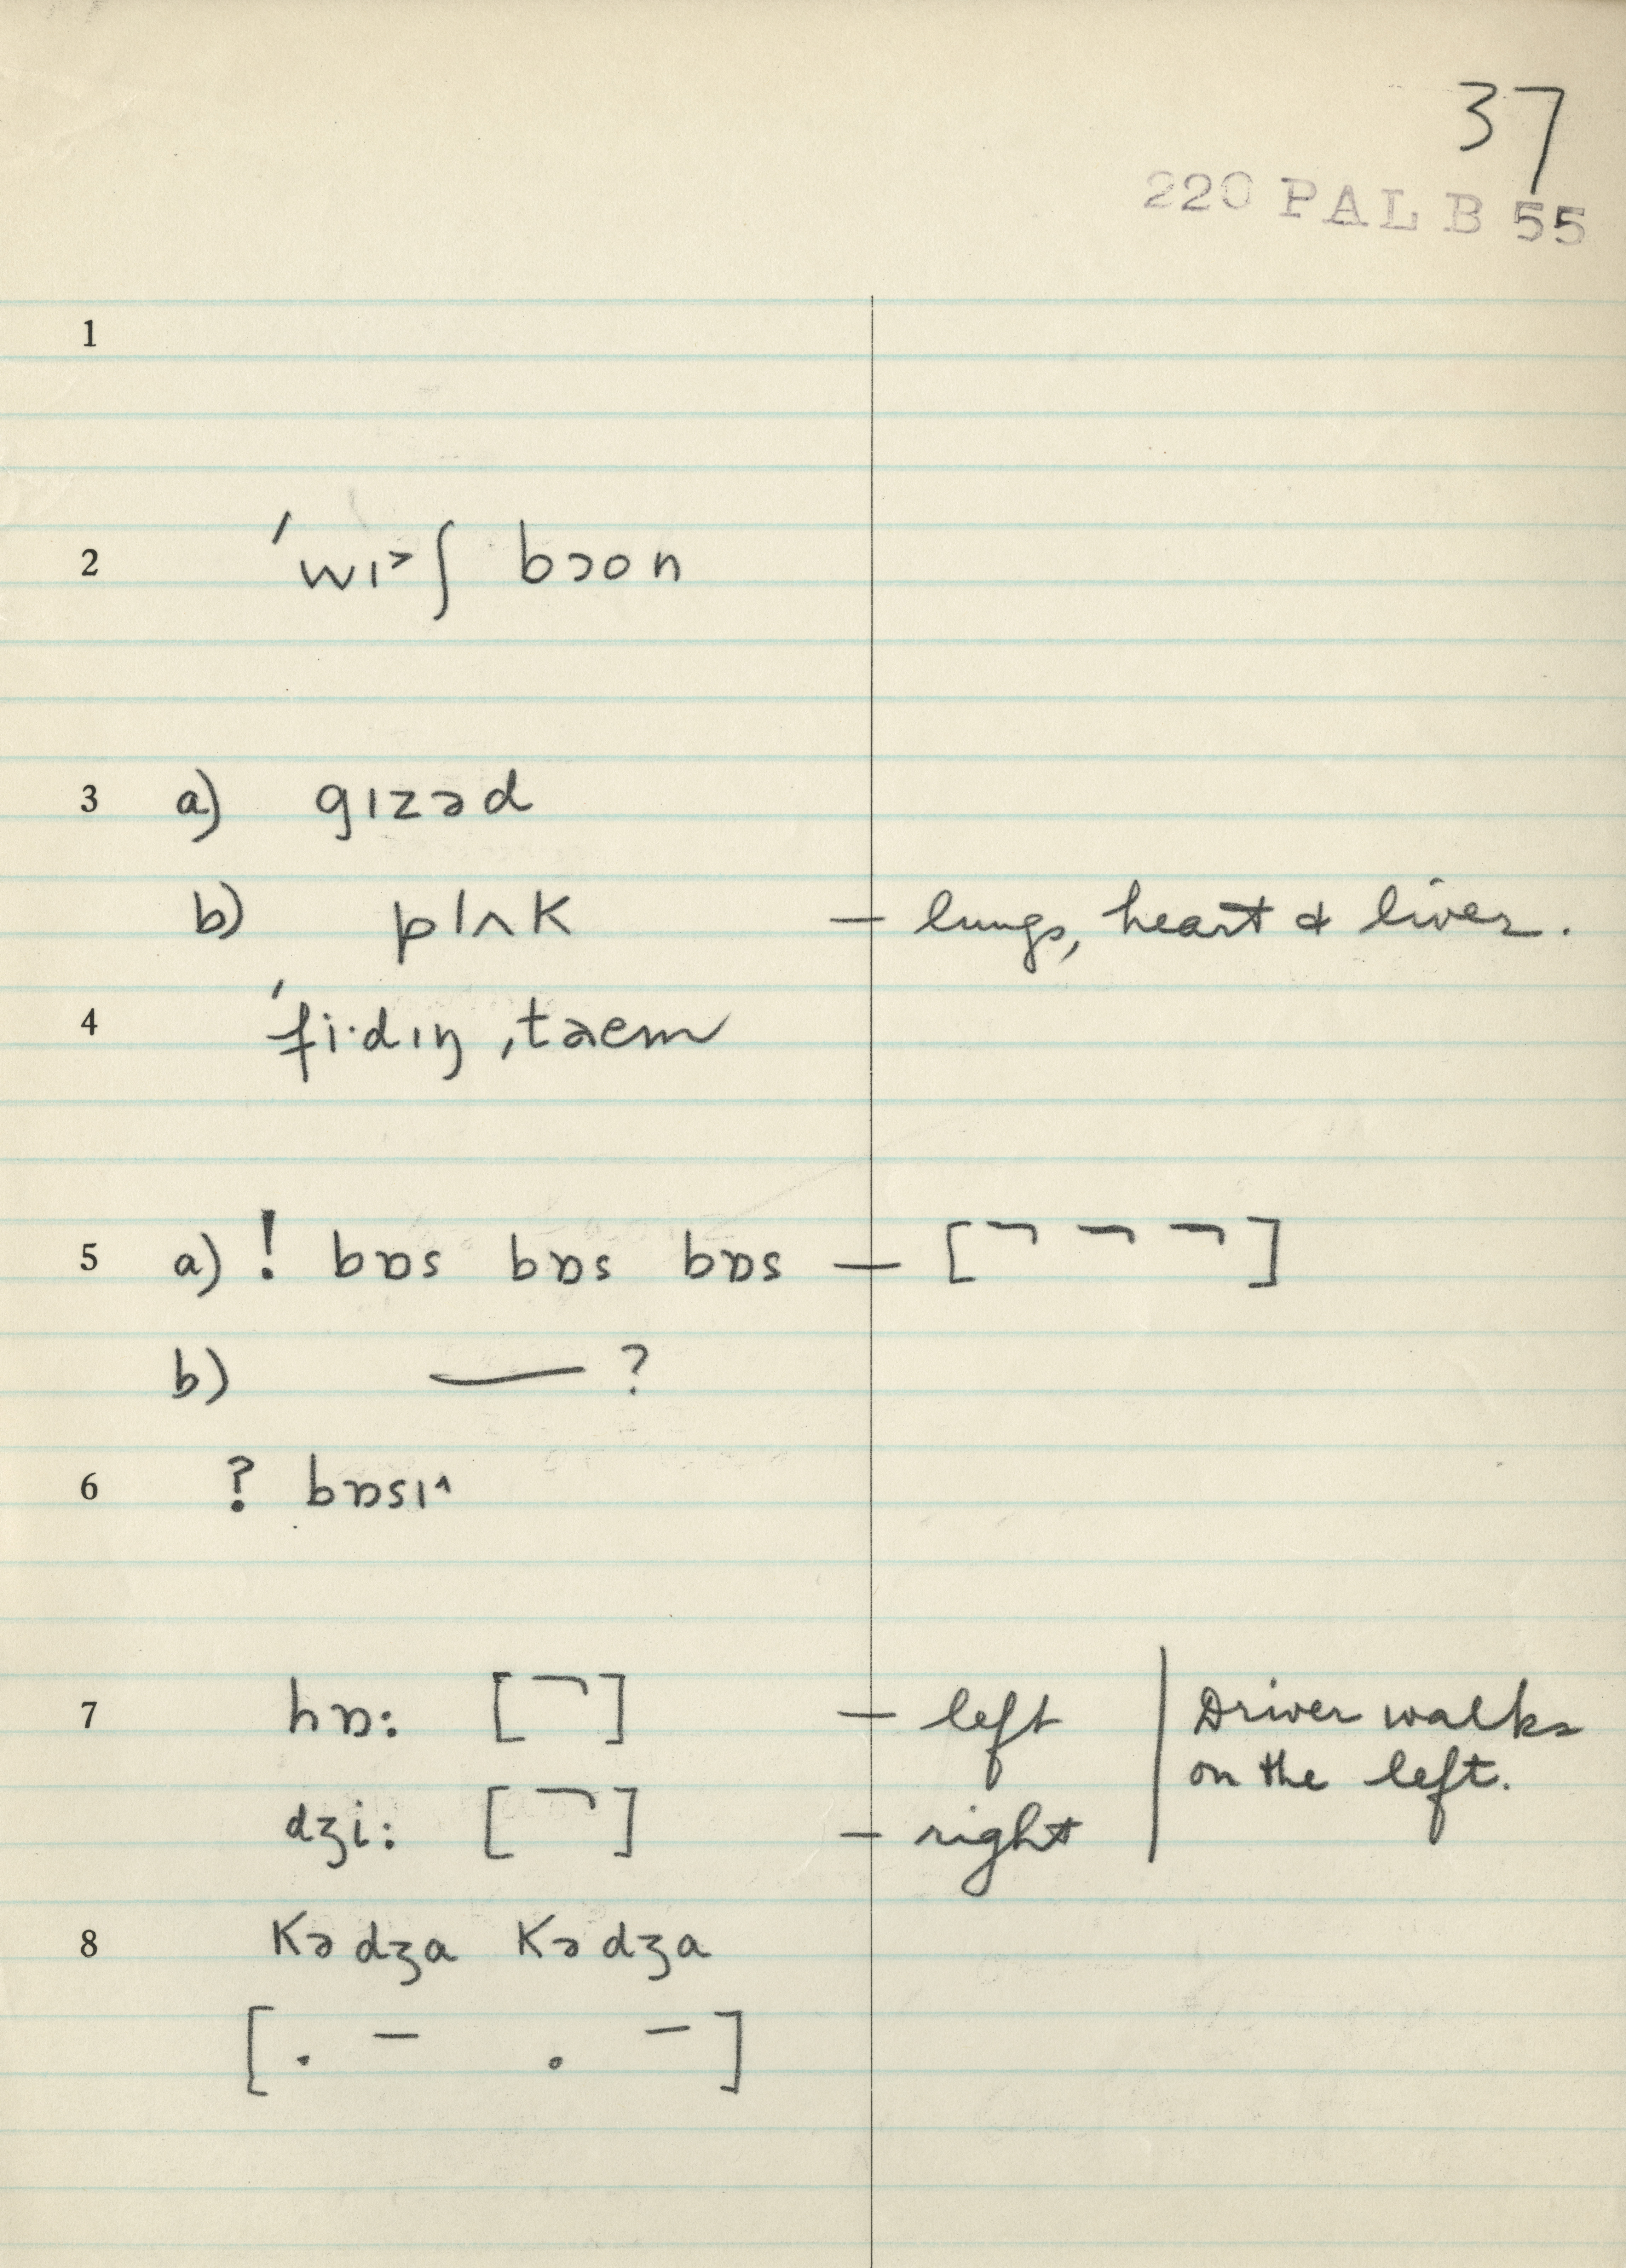 37
220 PAL B 55
1
2 ˈwɪ˃ʃ bɔon
3 a) gɪzəd
b) plʌk — lungs, heart & liver.
4 ˈfi·dɪŋ ˌtaem
5 a) ! bɒs bɒs bɒs — [ ¬ ¬ ¬ ]
b) — ?
6 ? bɒsɪ^
7 hɒ: [ ¬ ] — left | Driver walks
on the left.
dʒi: [ ¬ ] — right
8 Kədʒa Kədʒa
[ . – . – ]